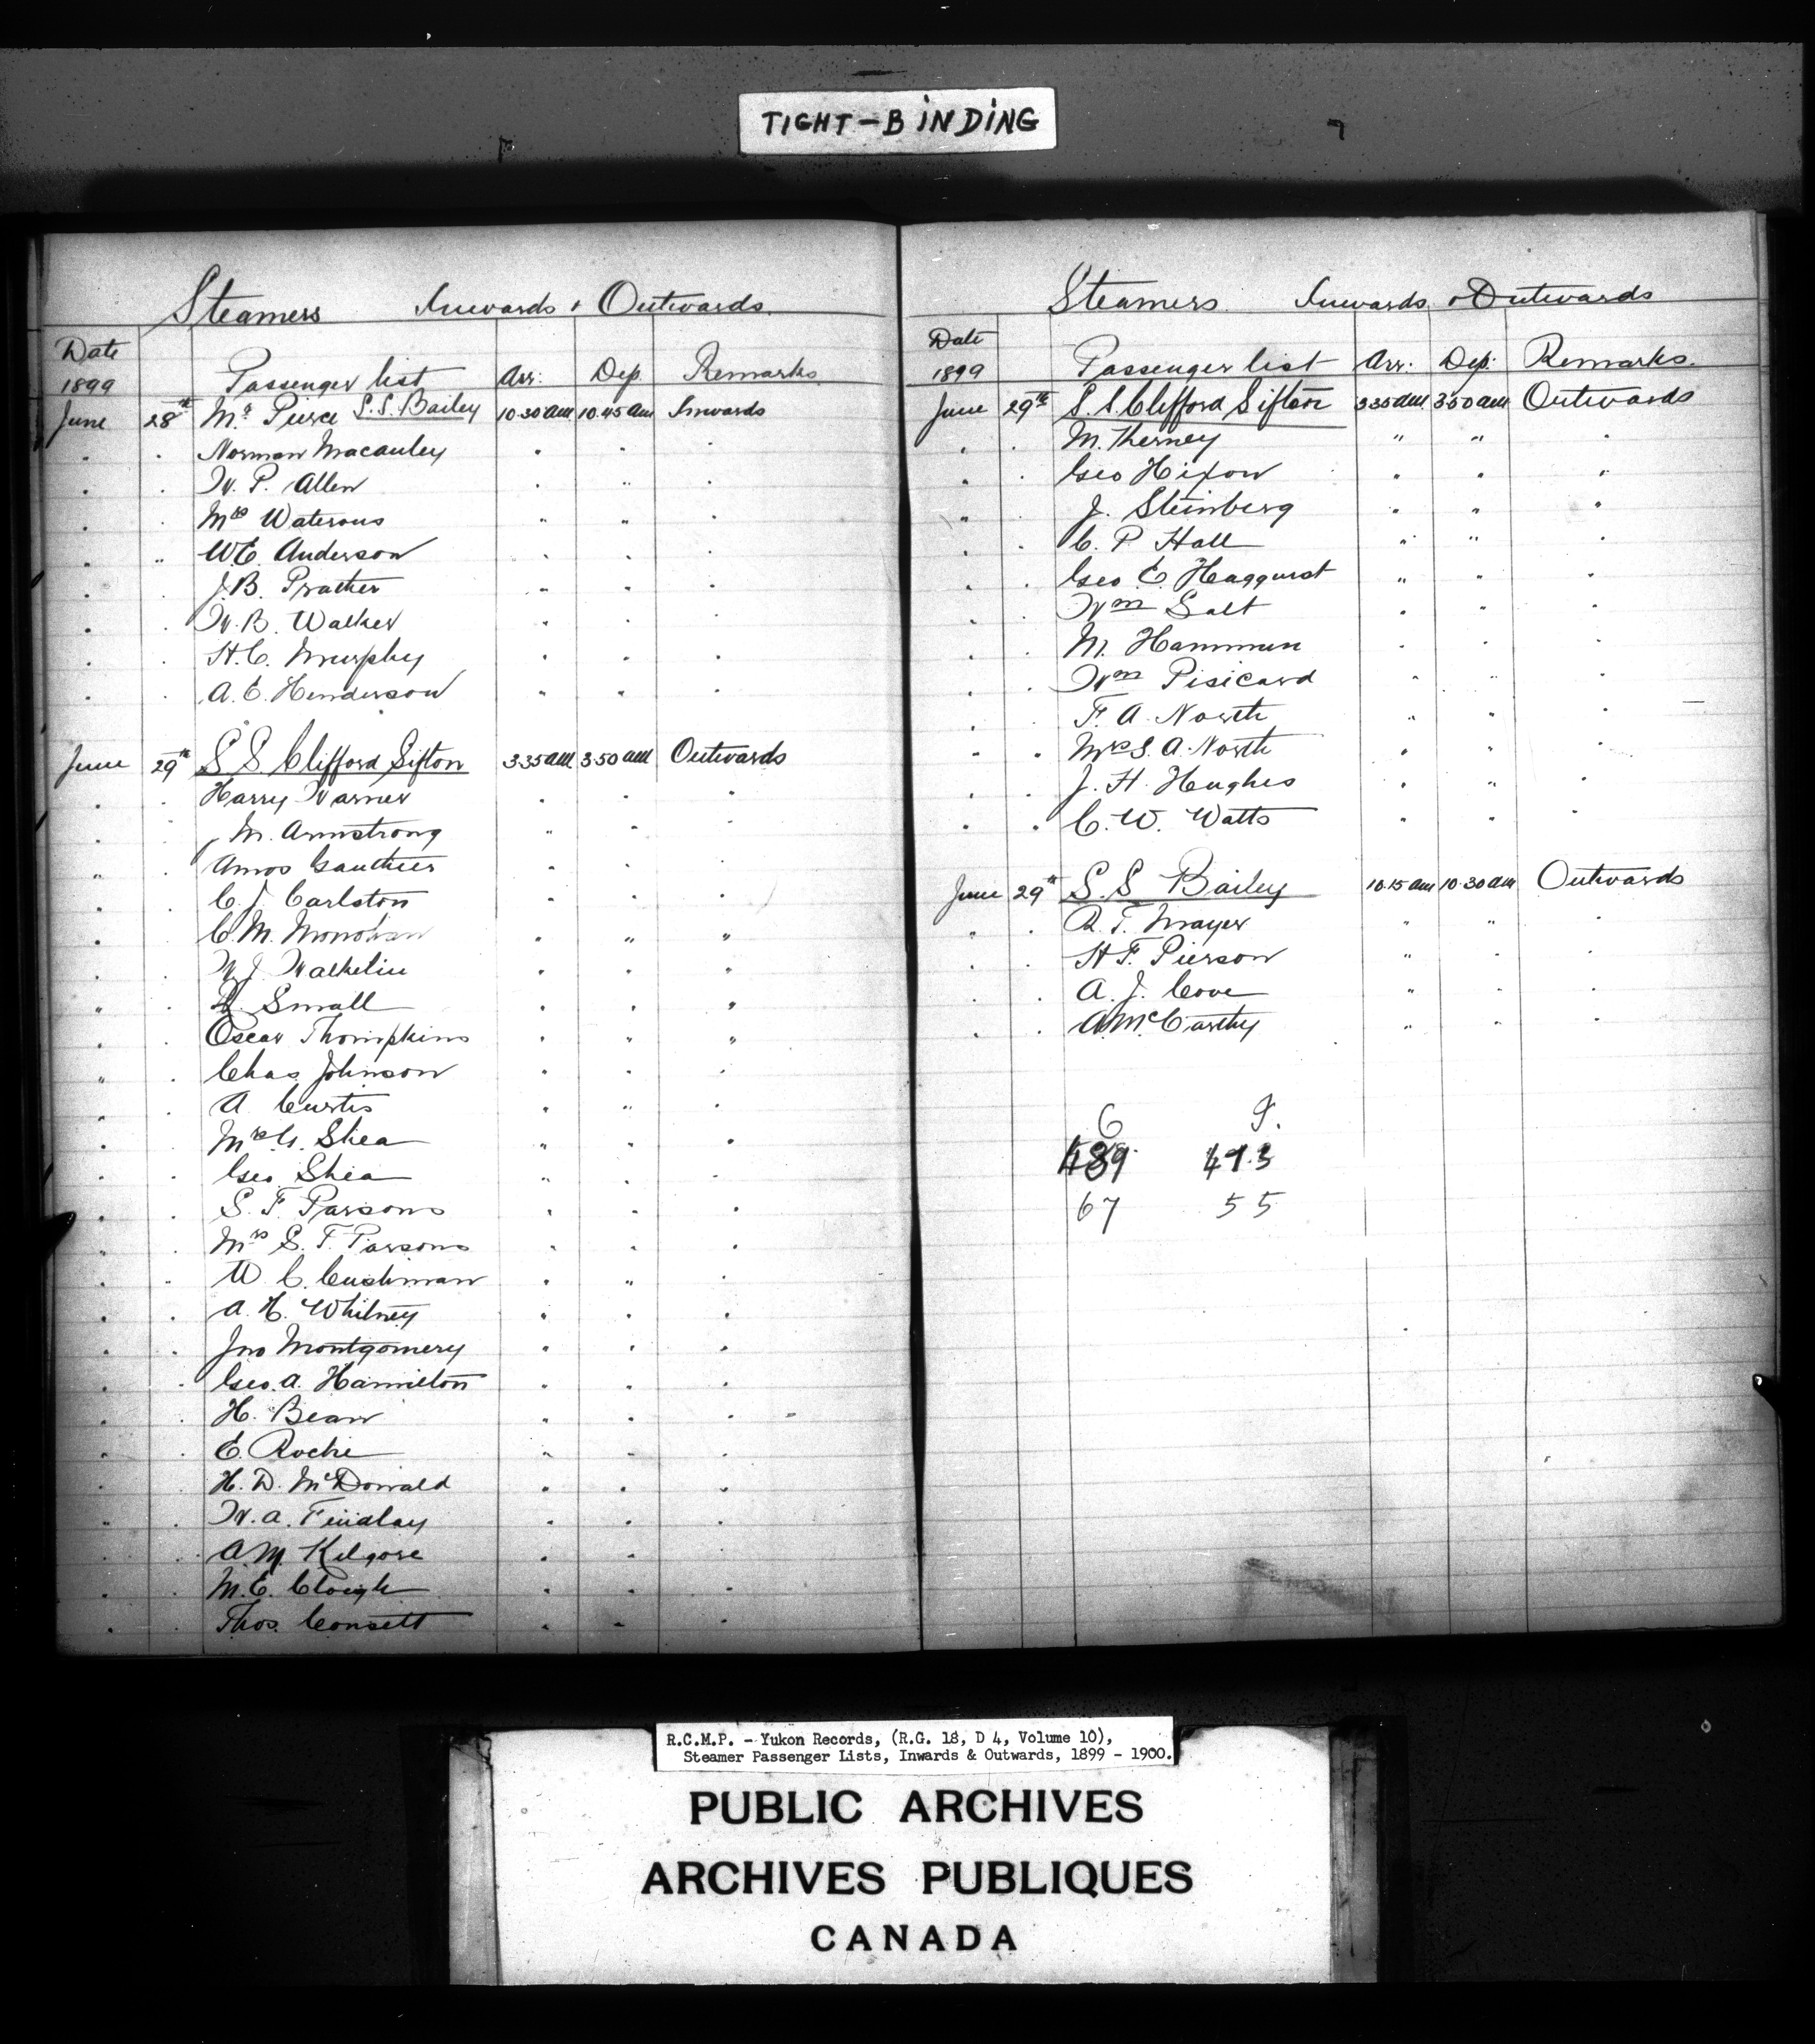 TIGHT-BINDING
Steamers Inwards & Outwards.
Date
1899 Passenger list Arr: Dep. Remarks.
June 28th Mr Pierce S.S. Bailey 10.30 am 10.45 am Inwards
" " Norman Macauley " " "
" " W. P. Allen " " "
" " Mrs Waterous " " "
" " W.E. Anderson " " "
" " J.B. Prather " " "
" " W.B. Walker " " "
" " H.C. Murphy " " "
" " A. E. Henderson " " "
June 29th S S. Clifford Sifton 3.35 am 3.50 am Outwards
" " Harry Warner " " "
" " M. Armstrong " " "
" " Amos Gauthier " " "
" " C. J. Carlston " " "
" " C. M. Monohan " " "
" " W J. Walkelin " " "
" " Small " " "
" " Oscar Thompkins " " "
" " Chas. Johnson " " "
" " A Curtis " " "
" " Mrs G. Shea " " "
" " Geo. Shea " " "
" " S. F. Parsons " " "
" " Mrs S. F. Parsons " " "
" " W. C. Cushman " " "
" " A. H. Whitney " " "
" " Jno Montgomery " " "
" " Geo. A. Hamilton " " "
" " H. Bean " " "
" " E. Roche " " "
" " H. D. McDonald " " "
" " W. A. Findlay " " "
" " A.M. Kilgore " " "
" " M.E. Clough " " "
" " Thos. Consett " " "
Steamers. Inwards & Outwards
Date
1899 Passenger list Arr: Dep: Remarks.
June 29th S. S. Clifford Sifton 3.35 am 3.50 am Outwards
" " M. Therney " " "
" " Geo Hixon " " "
" " J. Steinberg " " "
" " C. P. Hall " " "
" " Geo E. Haggurst " " "
" " Wm Salt " " "
" " M. Hammun " " "
" " Wm Pisicard " " "
" " F. A. North " " "
" " Mrs S. A. North " " "
" " J. H. Hughes " " "
" " C. W. Watts " " "
June 29th S. S Bailey 10.15 am 10.30 am Outwards
" " R. T. Mayer " " "
" " H F. Pierson " " "
" " A. J. Cove " " "
" " A. McCarthy " " "
489 493
67 55
R.C.M.P. - Yukon Records, (R.G. 18, D 4, Volume 10),
Steamer Passenger Lists, Inwards & Outwards, 1899 - 1900.
PUBLIC ARCHIVES
ARCHIVES PUBLIQUES
CANADA